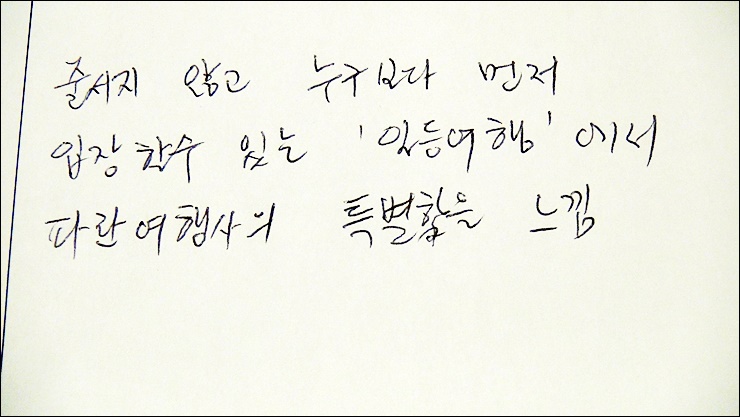 줄서지 않고 누구보다 먼저
입장할수 있는 '일등여행'에서
파란여행사의 특별함을 느낌